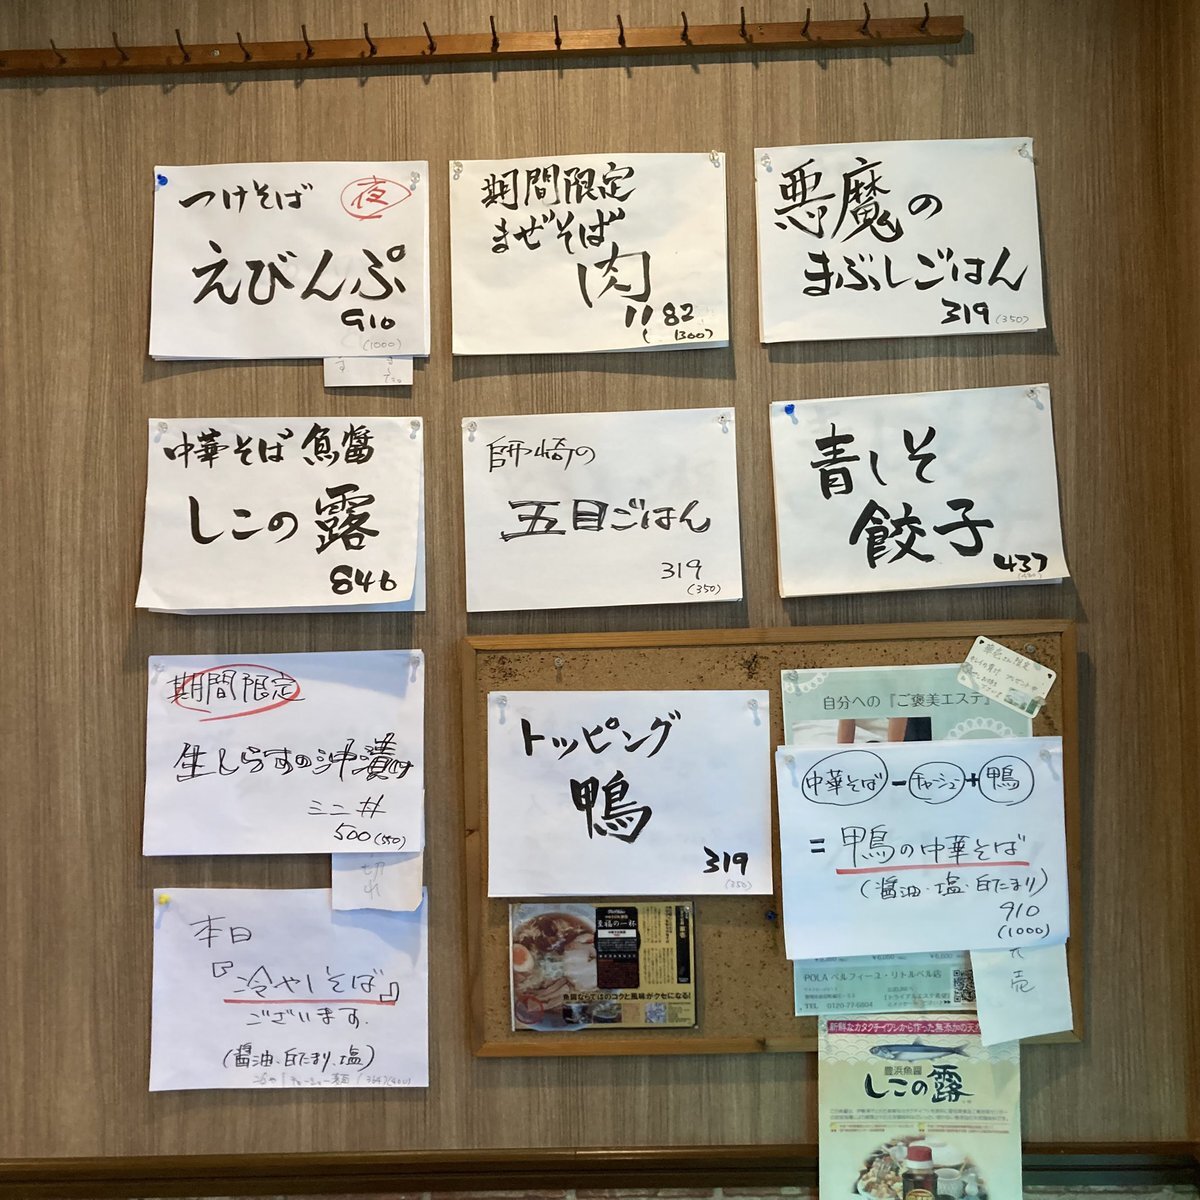 つけそば 夜
えびんぷ
910
(1000)
期間限定
まぜそば
肉
1182
(1300)
悪魔の
まぶしごはん
319 (350)
中華そば 魚醤
しこの露
846
師崎の
五目ごはん
319
(350)
青しそ
餃子
437
期間限定
生しらすの沖漬け
ミニ丼
500(550)
切れ
本日
『冷やしそば』
ございます.
(醤油・白たまり・塩)
トッピング
鴨
319
(350)
自分への『ご褒美エステ』
中華そば - チャーシュー + 鴨
= 鴨の中華そば
(醤油・塩・白たまり)
910
(1000)
売
至福の一杯
魚醤ならではのコクと風味がクセになる!
POLA ベルフィーユ・リトルベル店
TEL 0120-77-6804
新鮮なカタクチイワシから作った無添加の天
豊浜魚醤
しこの露